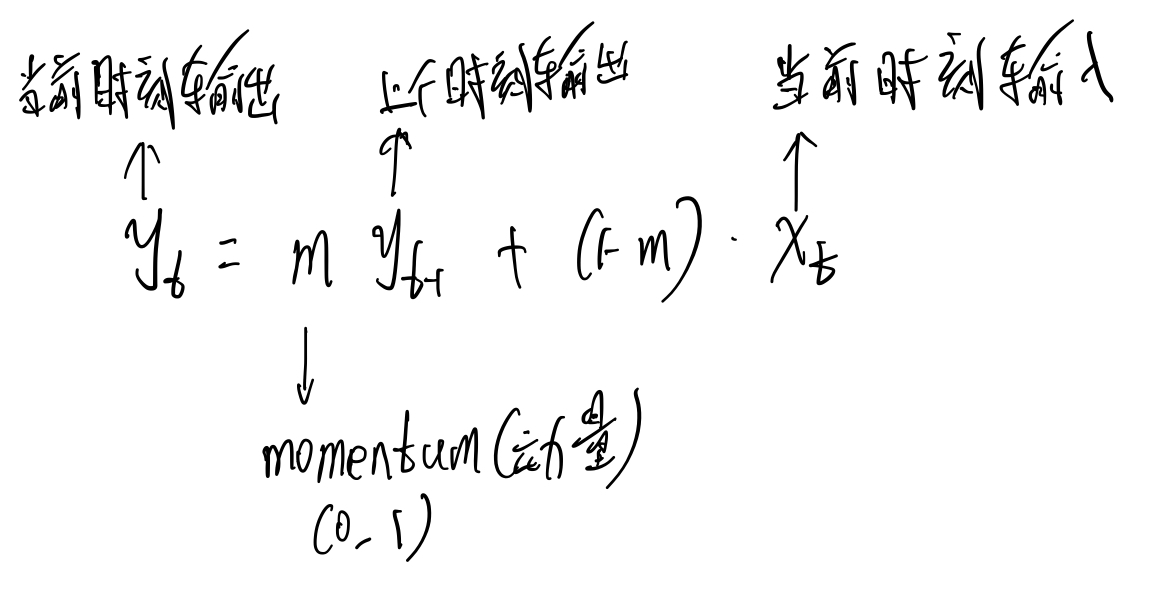 当前时刻输出 上个时刻输出 当前时刻输入
y_t = m y_{t-1} + (1-m) · x_t
momentum(动量)
(0-1)